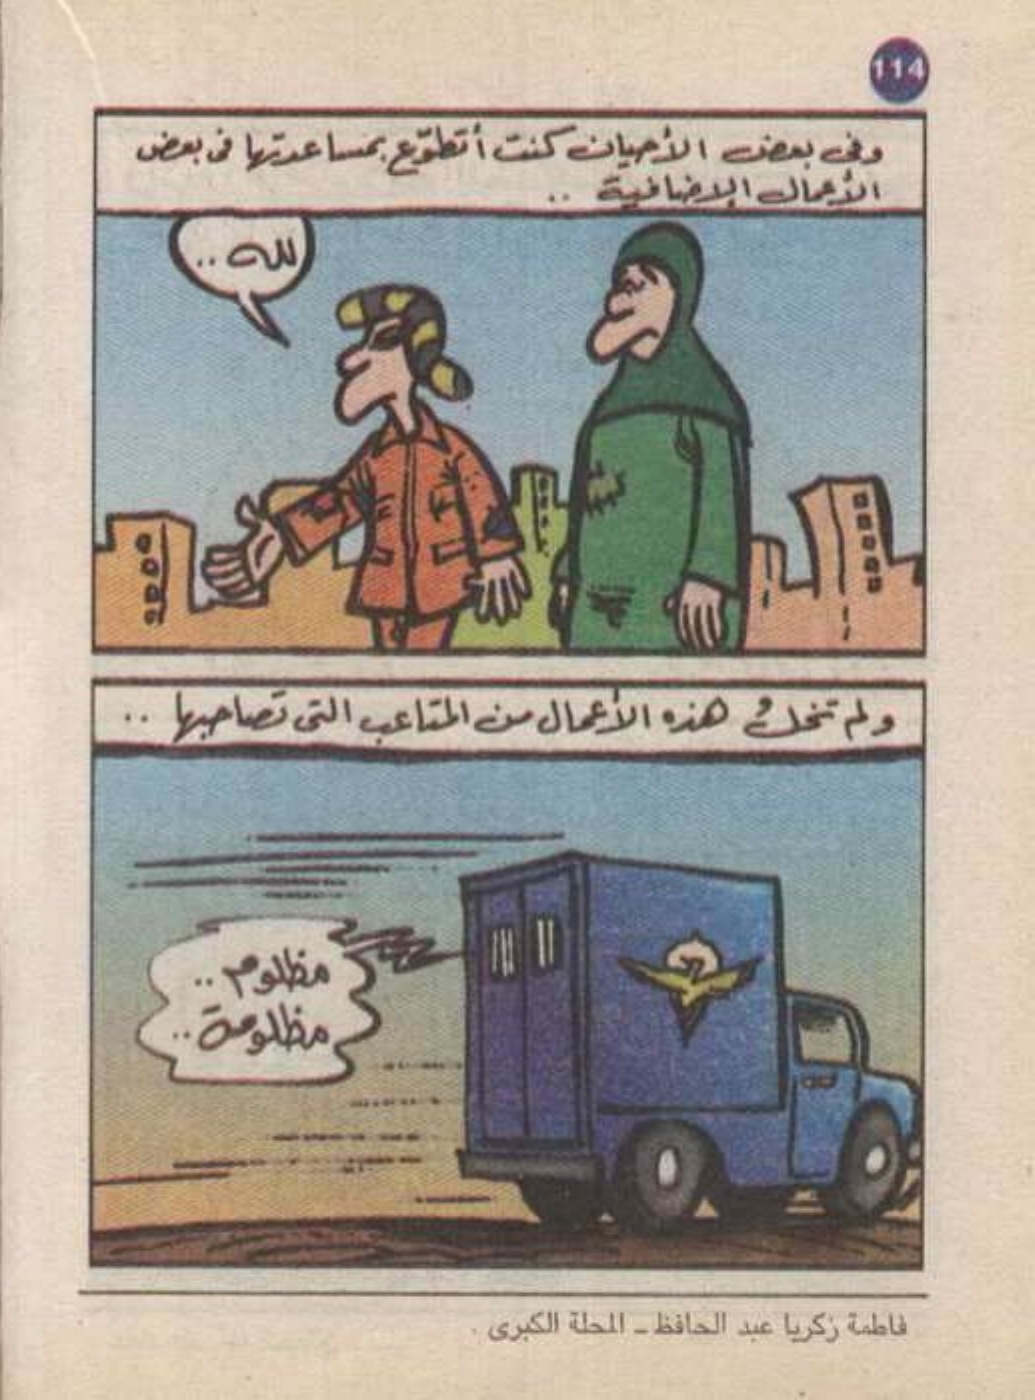 114
وفى بعض الأحيان كنت أتطوّع بمساعدتها فى بعض
الأعمال الإضافية ..
لله ..
ولم تخلُ هذه الأعمال من المتاعب التى تصاحبها ..
مظلوم ..
مظلومة ..
فاطمة زكريا عبد الحافظ ــ المحلة الكبرى .